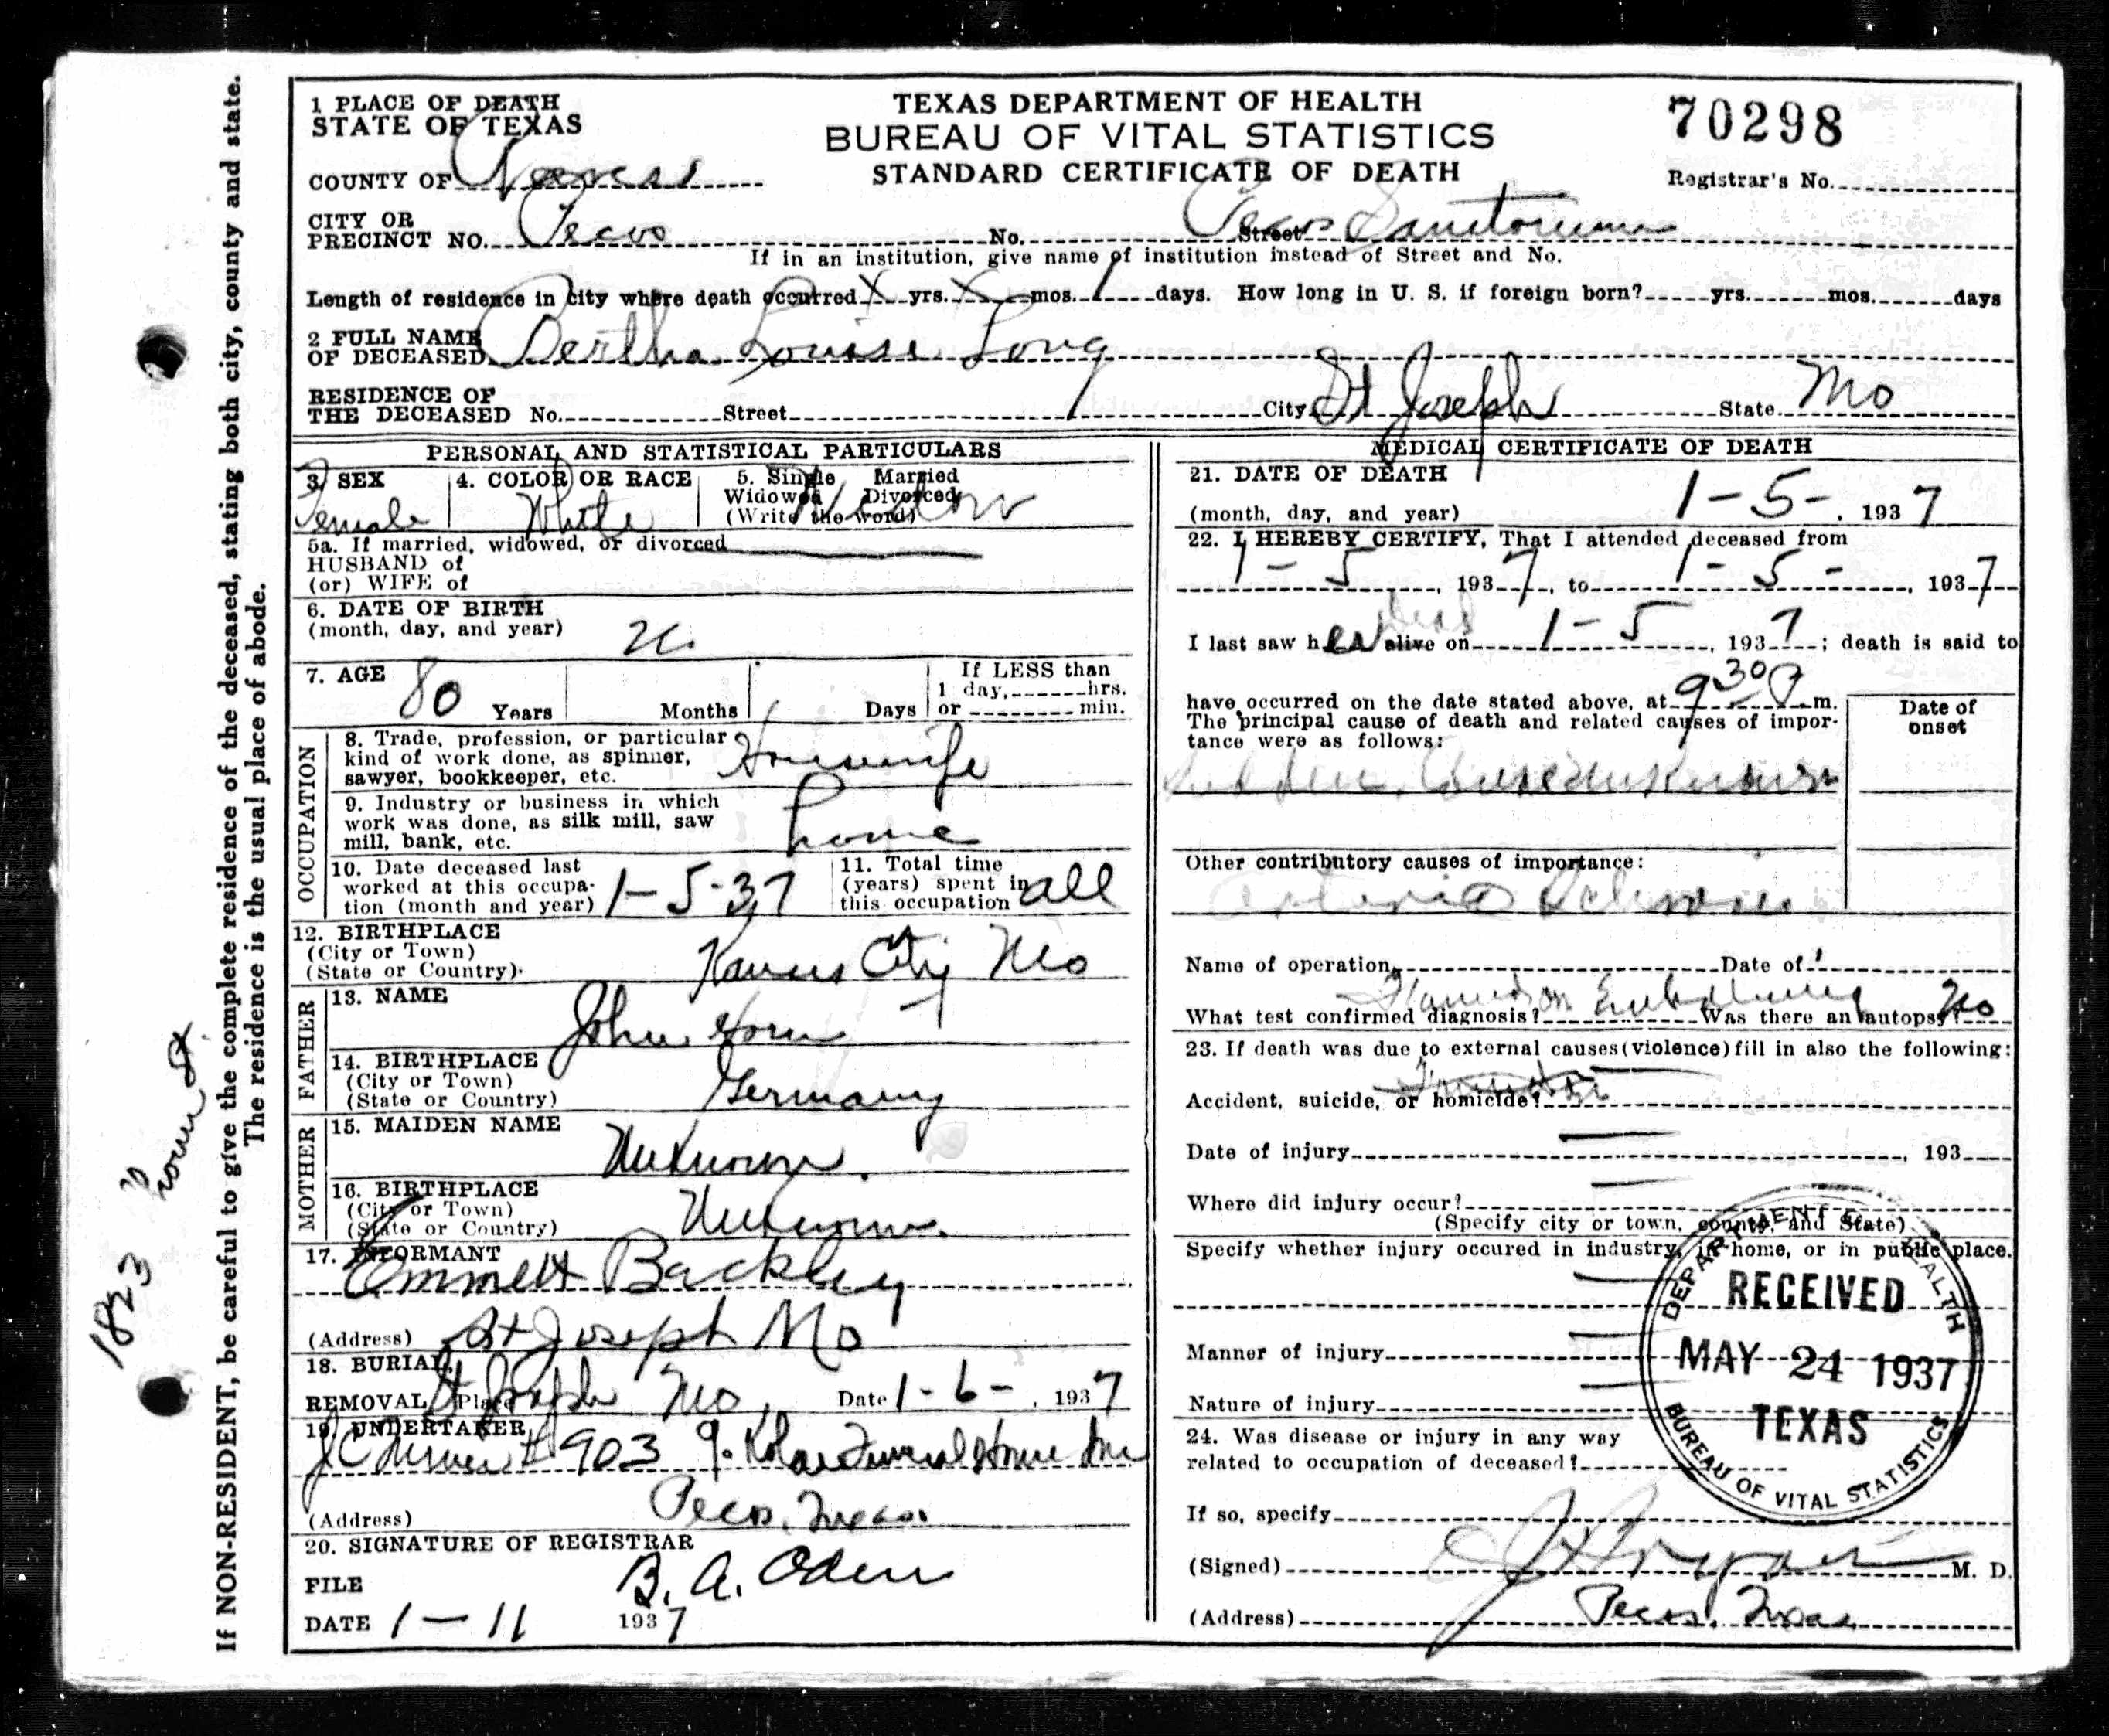 1 PLACE OF DEATH
STATE OF TEXAS
TEXAS DEPARTMENT OF HEALTH
BUREAU OF VITAL STATISTICS
STANDARD CERTIFICATE OF DEATH
70298
Registrar's No.
COUNTY OF Reeves
CITY OR
PRECINCT NO. Pecos No. Street Pecos Sanitorium
If in an institution, give name of institution instead of Street and No.
Length of residence in city where death occurred X yrs. X mos. 1 days. How long in U. S. if foreign born? yrs. mos. days
2 FULL NAME
OF DECEASED Bertha Louise Long
RESIDENCE OF
THE DECEASED No. Street City St Joseph State Mo
PERSONAL AND STATISTICAL PARTICULARS
3. SEX Female
4. COLOR OR RACE White
5. Single Married
Widowed Divorced
(Write the word) Widow
5a. If married, widowed, or divorced
HUSBAND of
(or) WIFE of
6. DATE OF BIRTH
(month, day, and year)
7. AGE 80 Years Months Days
If LESS than
1 day, hrs.
or min.
OCCUPATION
8. Trade, profession, or particular
kind of work done, as spinner,
sawyer, bookkeeper, etc. Housewife
9. Industry or business in which
work was done, as silk mill, saw
mill, bank, etc. home
10. Date deceased last
worked at this occupa-
tion (month and year) 1-5-37
11. Total time
(years) spent in
this occupation all
12. BIRTHPLACE
(City or Town)
(State or Country). Kansas City Mo
FATHER
13. NAME John Horn
14. BIRTHPLACE
(City or Town)
(State or Country) Germany
MOTHER
15. MAIDEN NAME Unknown.
16. BIRTHPLACE
(City or Town)
(State or Country) Unknown.
17. INFORMANT
Emmett Backley
(Address) St Joseph Mo
18. BURIAL
REMOVAL Place St Joseph Mo, Date 1-6-, 1937
19. UNDERTAKER
903 Funeral Home Inc
(Address) Pecos, Texas.
20. SIGNATURE OF REGISTRAR
B. A. Oden
FILE
DATE 1-11 1937
MEDICAL CERTIFICATE OF DEATH
21. DATE OF DEATH
(month, day, and year) 1-5-, 1937
22. I HEREBY CERTIFY, That I attended deceased from
1-5, 1937, to 1-5-, 1937
Dead
I last saw her alive on 1-5, 1937; death is said to
have occurred on the date stated above, at 9 30 P m.
The principal cause of death and related causes of impor-
tance were as follows:
Date of
onset
Sudden,
Other contributory causes of importance:
Name of operation Date of
What test confirmed diagnosis? Was there an autopsy? No
23. If death was due to external causes (violence) fill in also the following:
Accident, suicide, or homicide?
Date of injury , 193
Where did injury occur?
(Specify city or town, county, and State)
Specify whether injury occured in industry, in home, or in public place.
Manner of injury
Nature of injury
24. Was disease or injury in any way
related to occupation of deceased?
If so, specify
(Signed) M. D.
(Address) Pecos, Texas
DEPARTMENT OF HEALTH
RECEIVED
MAY 24 1937
TEXAS
BUREAU OF VITAL STATISTICS
If NON-RESIDENT, be careful to give the complete residence of the deceased, stating both city, county and state.
The residence is the usual place of abode.
1823